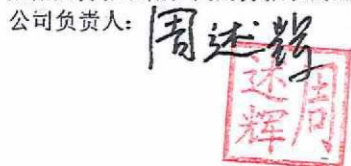 公司负责人：周述辉
周述辉